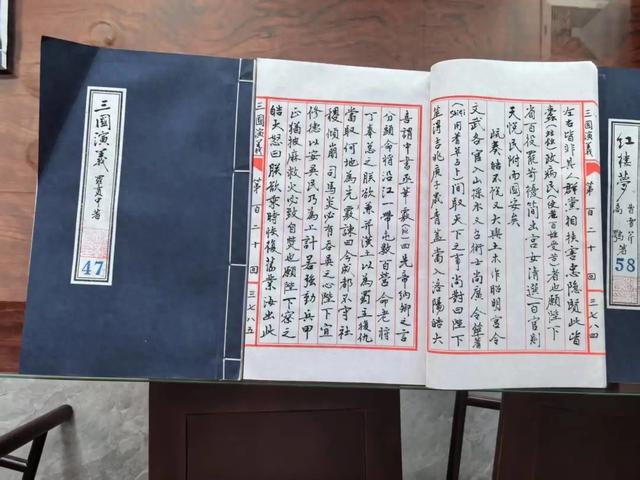 三國演義 羅貫中著
47
三國演義 第百二十回 三七八四
左右皆非其人群黨相挾害忠隱賢此皆
政病民(使老百姓受苦)者也願陛下
省百役罷苛擾簡出宮女清選百官則
天悅民附而國安矣
疏奏皓不悅又大興土木作昭明宮令
文武各官入山採木又召術士尚廣令筮蓍
(shi用蓍草占卜)問取天下之事尚對曰陛下
筮得吉兆庚子歲青蓋當入洛陽皓大
喜謂中書丞華覈曰先帝納卿之言
分頭命將沿江一帶屯數百營命老將
丁奉總之朕欲兼并漢土以為蜀主復仇
當取何地為先覈諫曰今成都不守社
稷傾崩司馬炎必有吞吳之心陛下宜
修德以安吳民乃為上計若強動兵甲
正猶披麻救火必致自焚也願陛下察之
皓大怒曰朕欲乘時恢復舊業汝出此
三國演義 第百二十回 三七八五
紅樓夢 曹雪芹 高鶚著
58